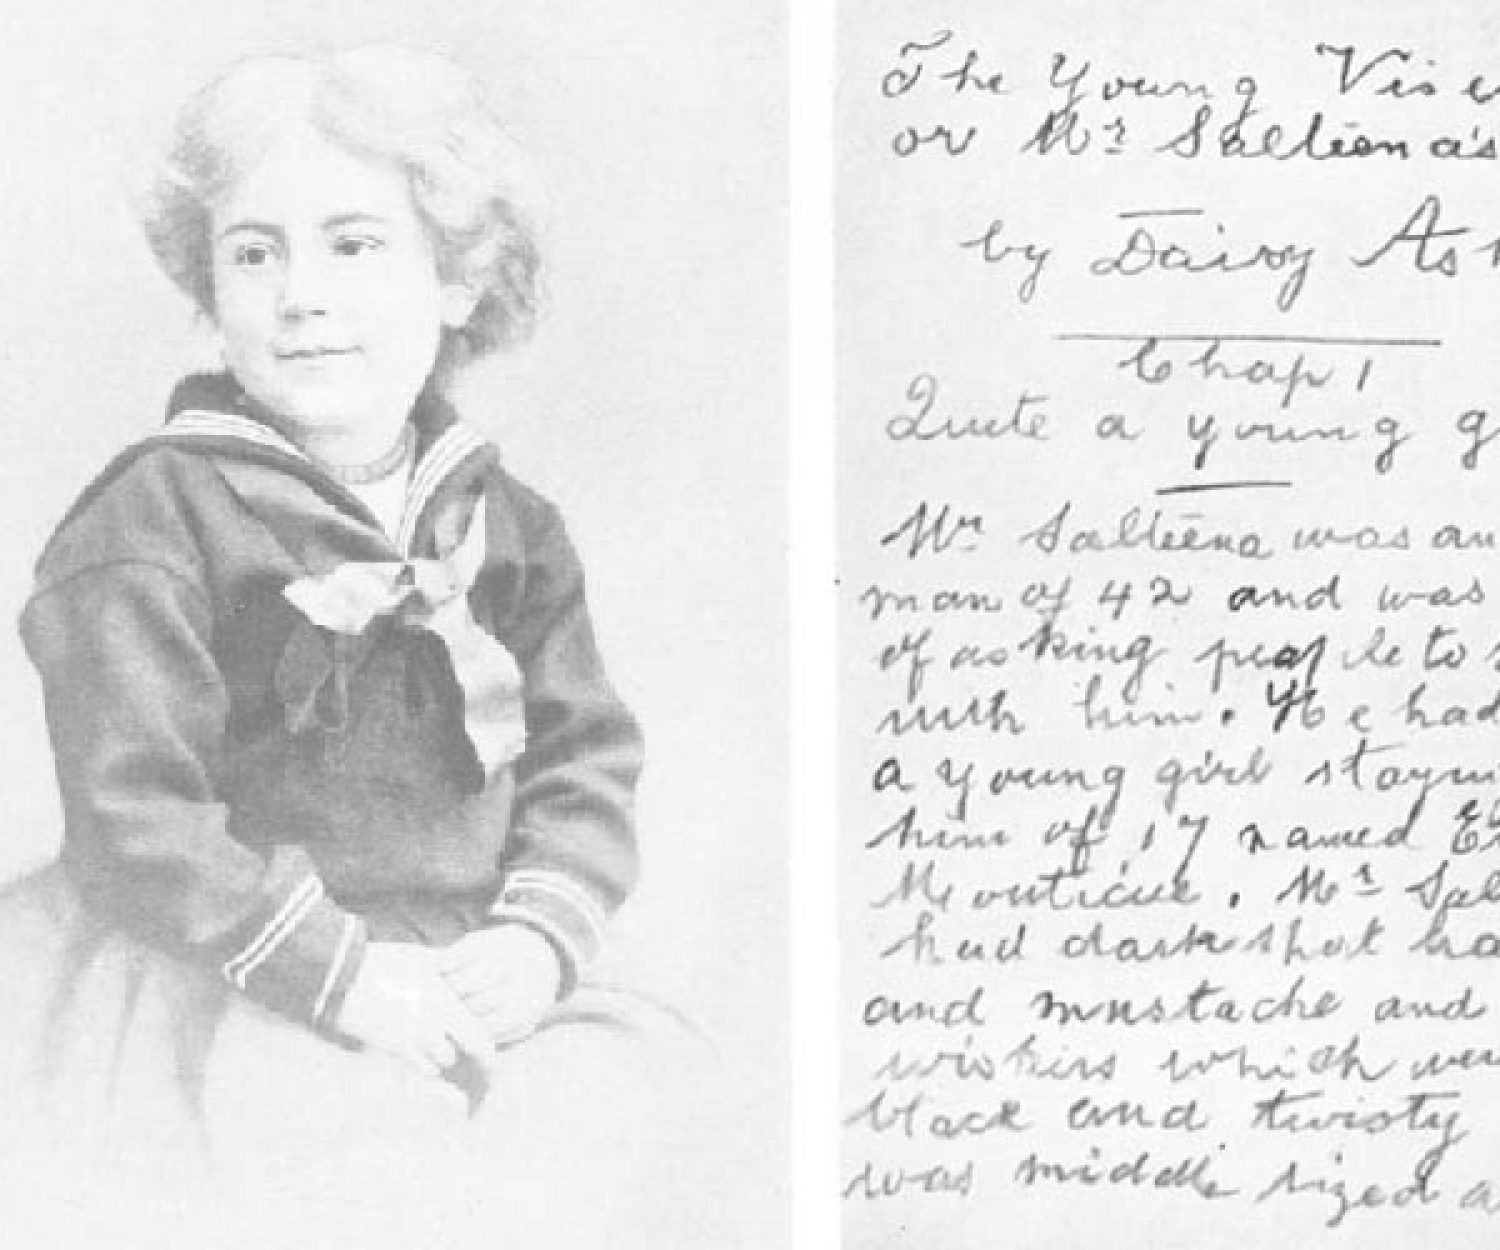 The Young Vis
or Mr Salteena's
by Daisy Ash
Chap 1
Quite a young g
Mr Salteena was an
man of 42 and was
of asking peaple to s
with him. He had
a young girl stayin
him of 17 named Et
Monticue. Mr Sal
had dark short ha
and mustache and
wiskers which wer
black and twisty
was middle sized a